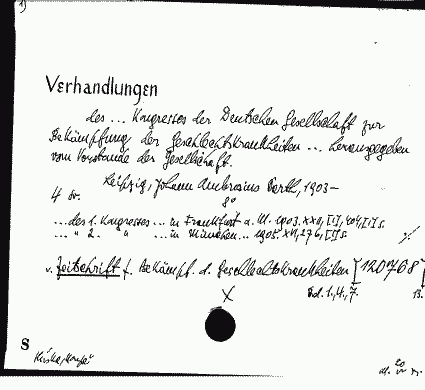 1)
Verhandlungen
des ... Kongresses der Deutschen Gesellschaft zur
Bekämpfung der Geschlechtskrankheiten ... herausgegeben
vom Vorstande der Gesellschaft.
Leipzig, Johann Ambrosius Barth, 1903-
4 8°
... des 1. Kongresses ... in Frankfurt a. M. 1903. XXI, [I], 404, [I] S.
... " 2. " ... in München ... 1905. XVI, 276, [I] S.
v. Zeitschrift f. Bekämpf. d. Geschlechtskrankheiten [120768]
X Bd. 1., 4., 7. 13.
S